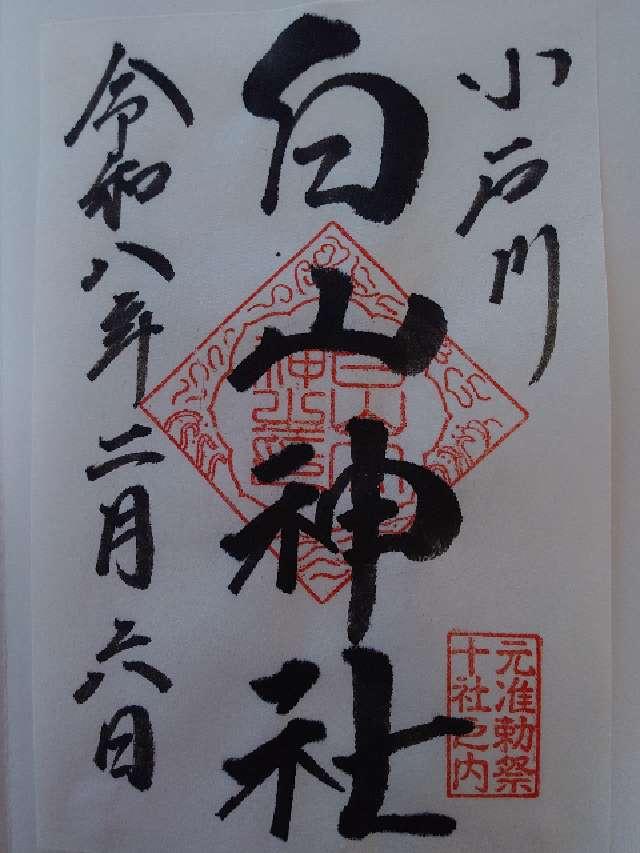 小石川
白山神社
令和八年二月六日
元准勅祭
十社之内